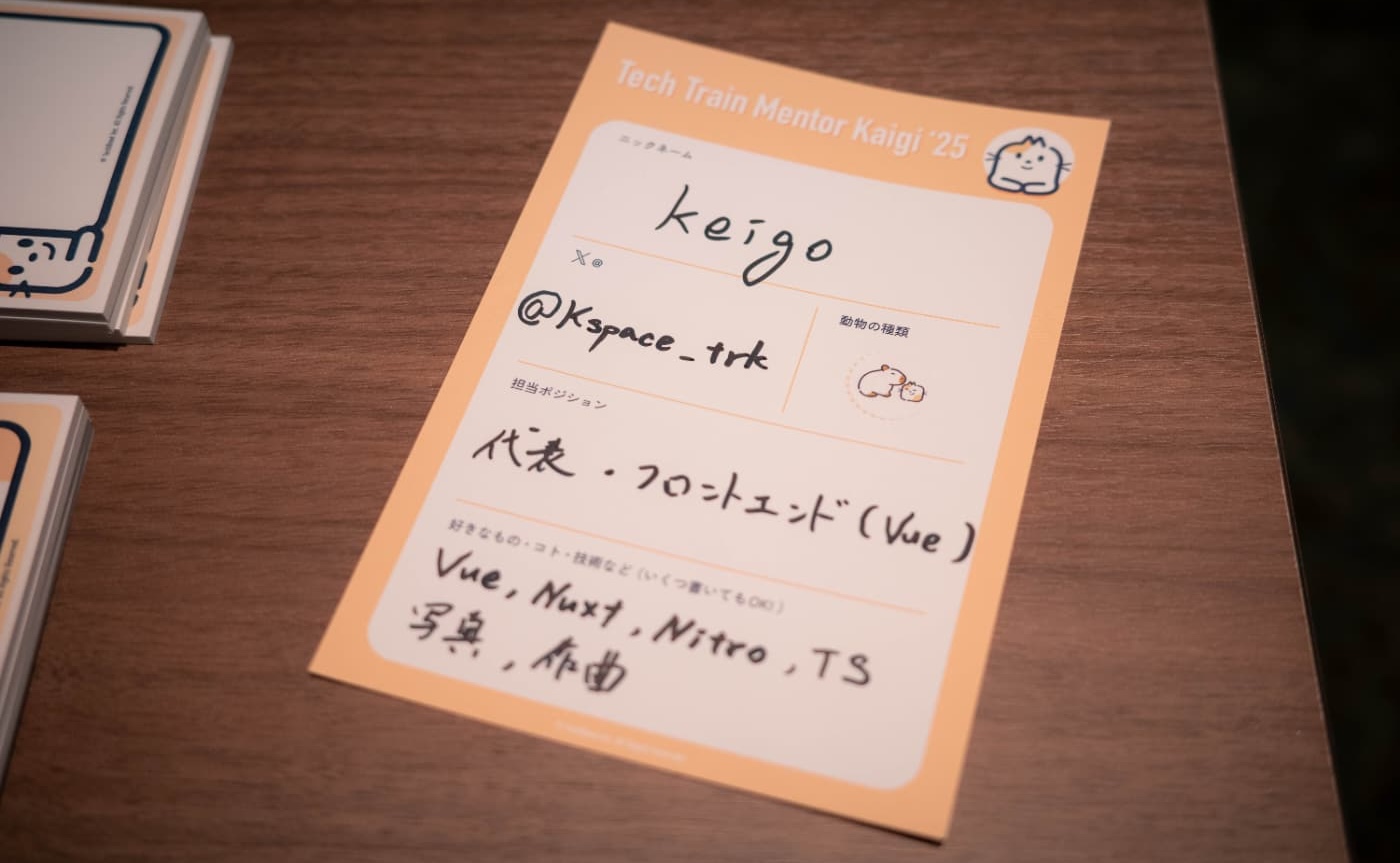 Tech Train Mentor Kaigi '25
ニックネーム
keigo
X @
@Kspace_trk
動物の種類
担当ポジション
代表・フロントエンド(Vue)
好きなもの・コト・技術など(いくつ書いてもOK!)
Vue, Nuxt, Nitro, TS
写真, 作曲